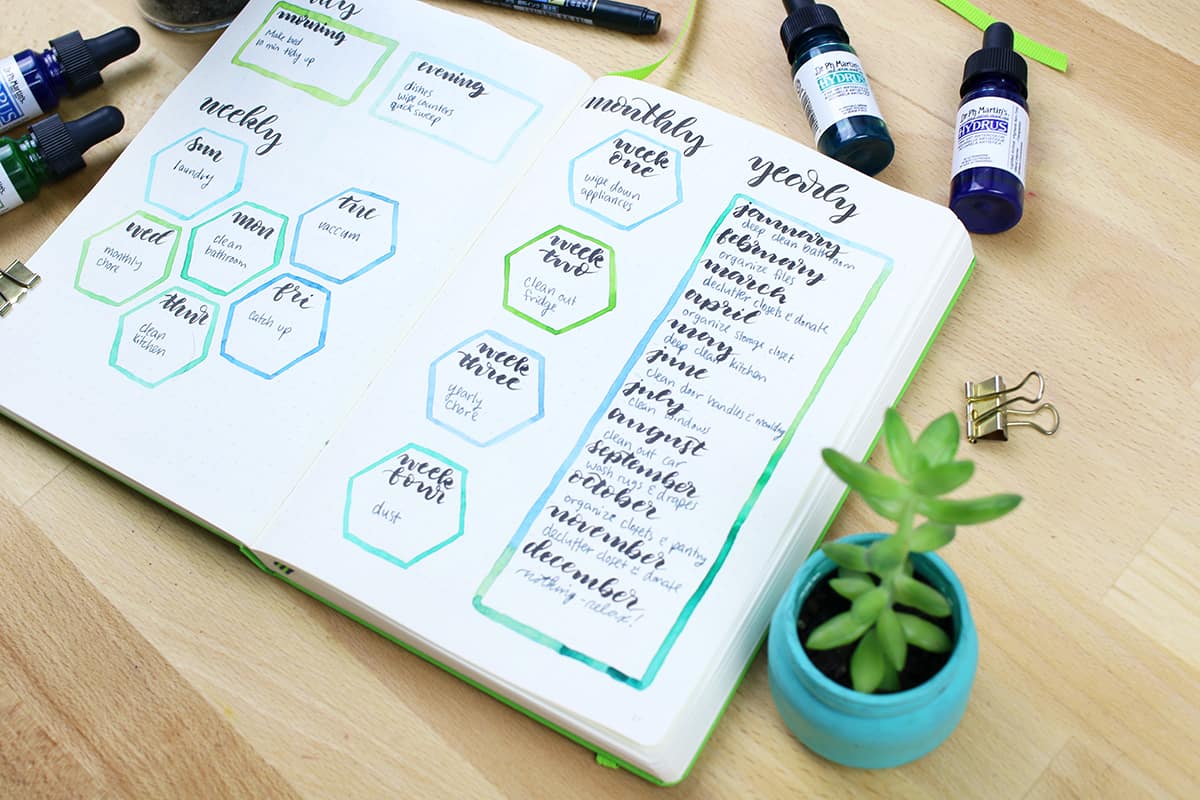 morning
Make bed
10 min tidy up
evening
dishes
wipe counters
quick sweep
weekly
sun
laundry
mon
clean
bathroom
tue
vaccum
wed
monthly
chore
thur
clean
kitchen
fri
catch up
monthly
week
one
wipe down
appliances
week
two
clean out
fridge
week
three
yearly
chore
week
four
dust
yearly
january
deep clean bathroom
february
organize files
march
declutter closets & donate
april
organize storage closet
may
deep clean kitchen
june
clean door handles & moulding
july
clean windows
august
clean out car
september
wash rugs & drapes
october
organize closets & pantry
november
declutter closet & donate
december
nothing - relax!
Dr. Ph. Martin's
HYDRUS
Dr. Ph. Martin's
HYDRUS